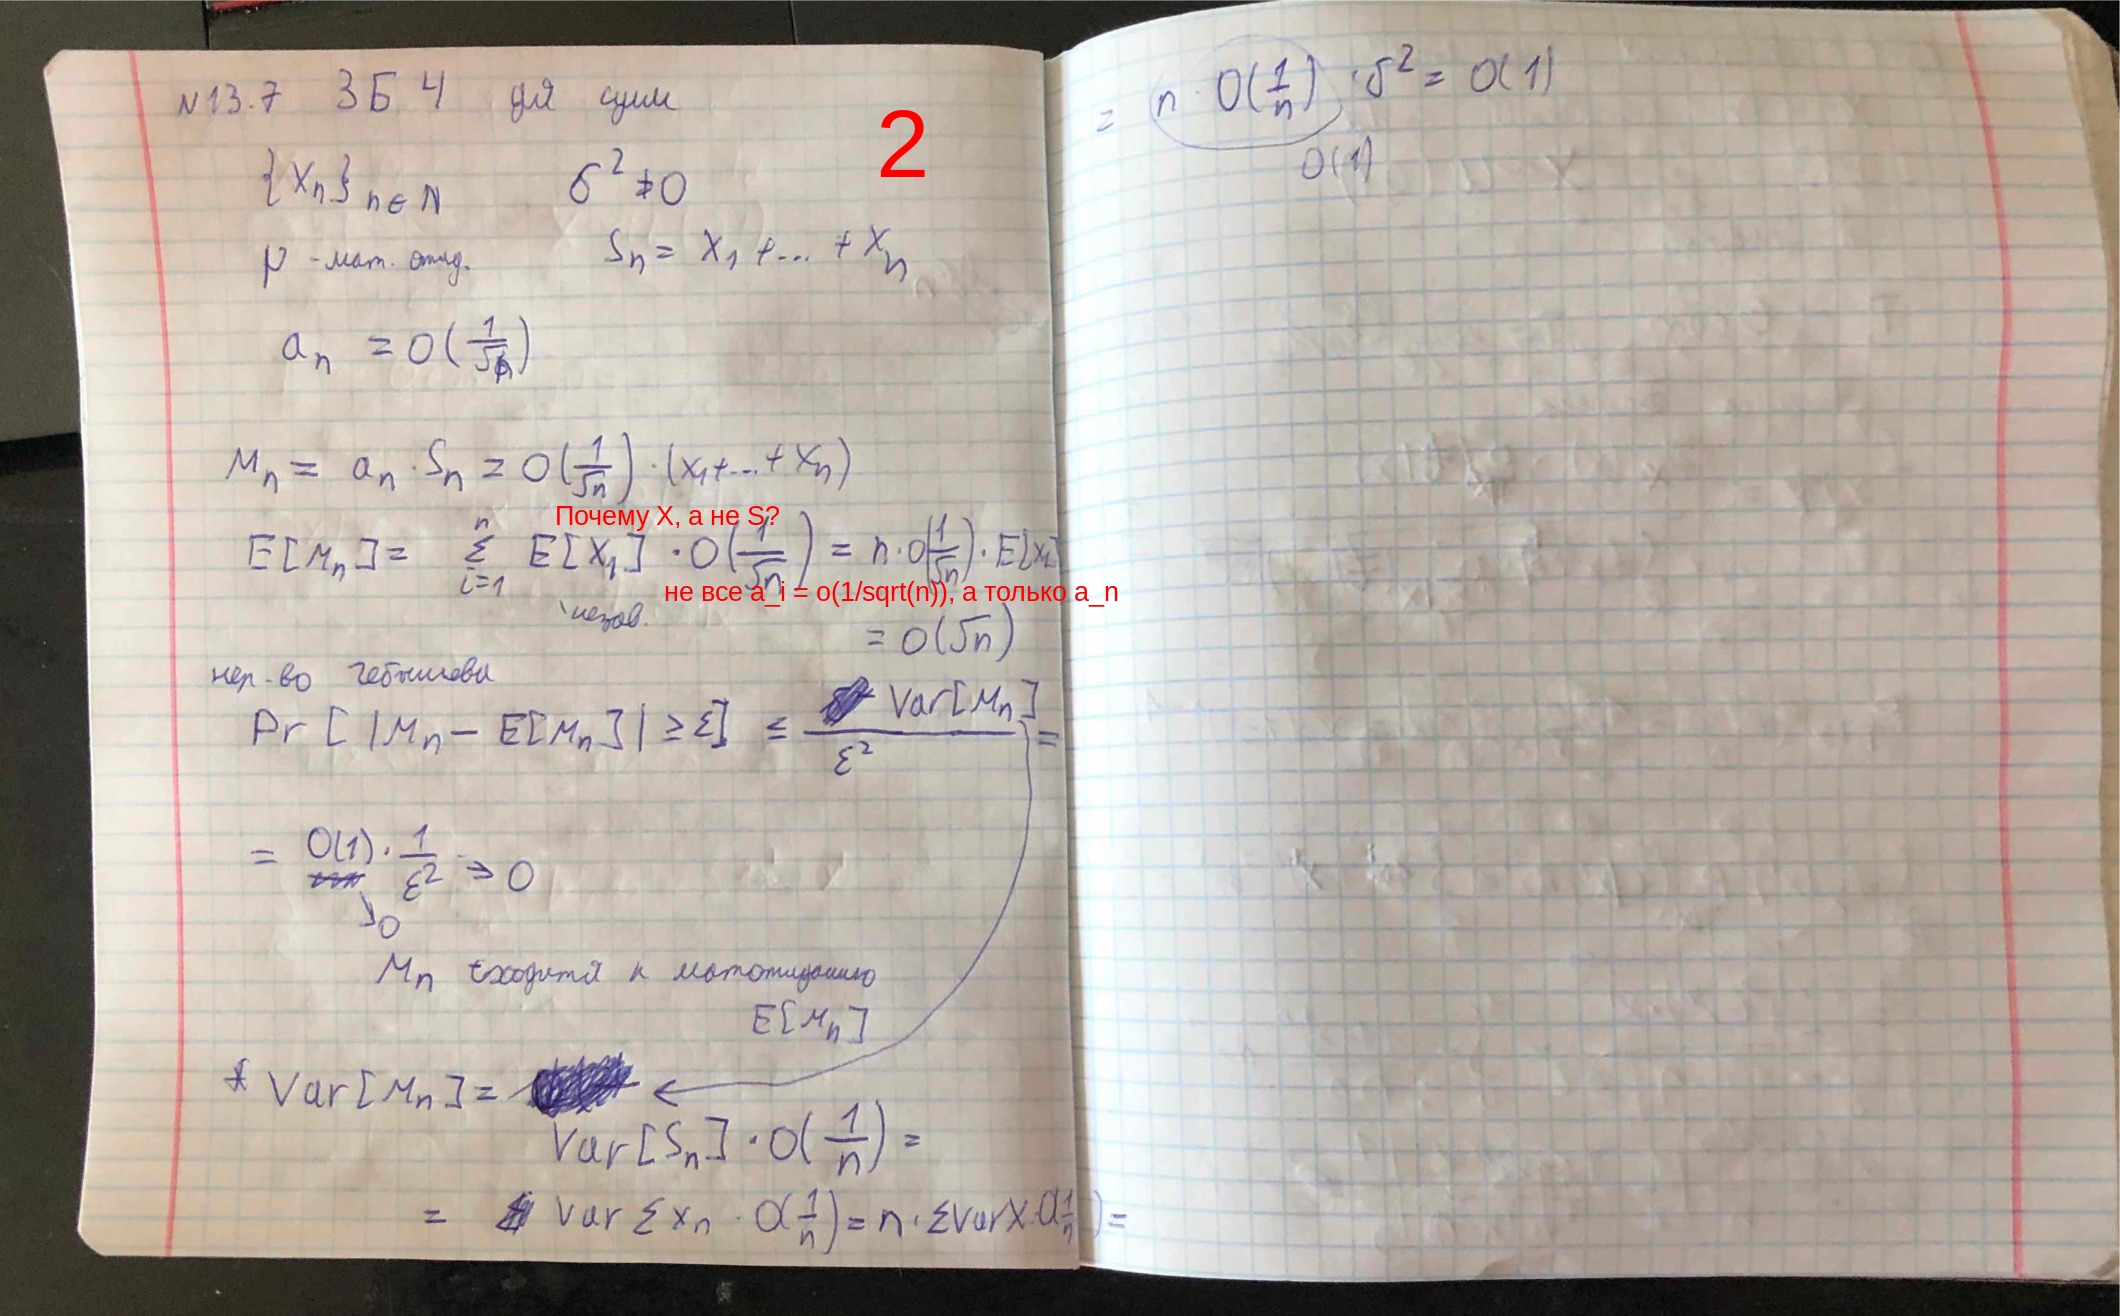 N13.7 ЗБЧ для сумм
2
{X_n}_{n∈N} σ² ≠ 0
μ - мат. ожид. S_n = X_1 + ... + X_n
a_n = o(1/√n)
M_n = a_n · S_n = o(1/√n) · (x_1 + ... + X_n)
Почему X, а не S?
E[M_n] = Σ_{i=1}^{n} E[X_1] · o(1/√n) = n · o(1/√n) · E[x_1]
не все a_i = o(1/sqrt(n)), а только a_n
незав.
= o(√n)
нер-во Чебышева
Pr[|M_n - E[M_n]| ≥ ε] ≤ Var[M_n]/ε² =
= o(1) · 1/ε² → 0
↘0
M_n сходится к матожиданию
E[M_n]
* Var[M_n] =
Var[S_n] · o(1/n) =
= Var Σ x_n · o(1/n) = n · Σ Var X · o(1/n) =
= n · o(1/n) · σ² = o(1)
o(1)